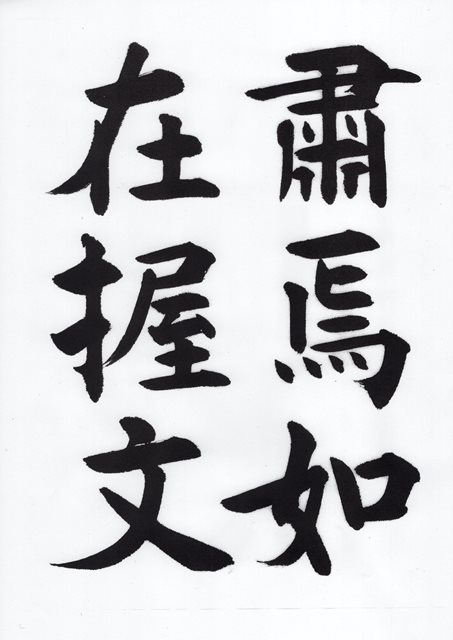 肅焉如
在握文